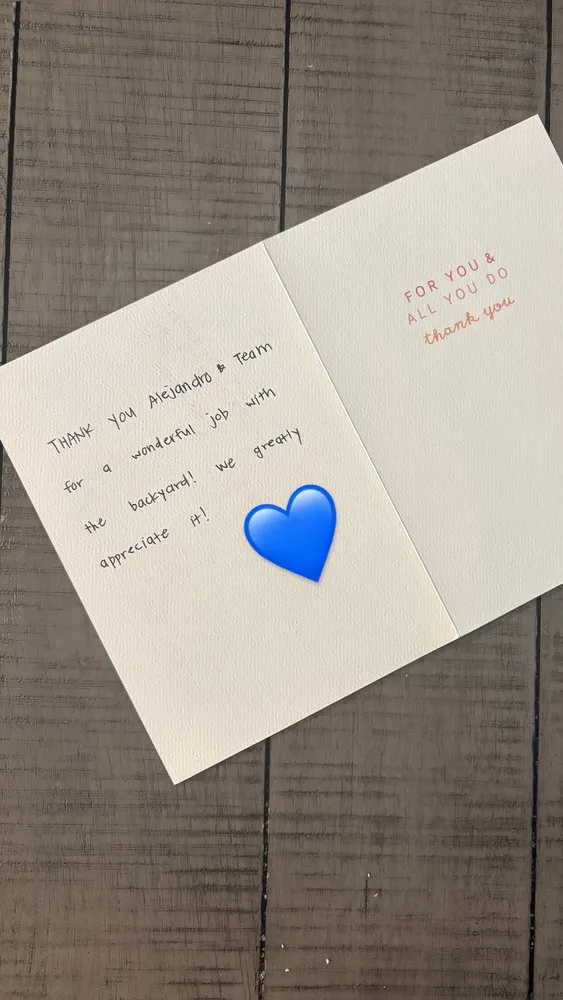 THANK YOU Alejandro & Team
for a wonderful job with
the backyard! we greatly
appreciate it!
FOR YOU &
ALL YOU DO
thank you